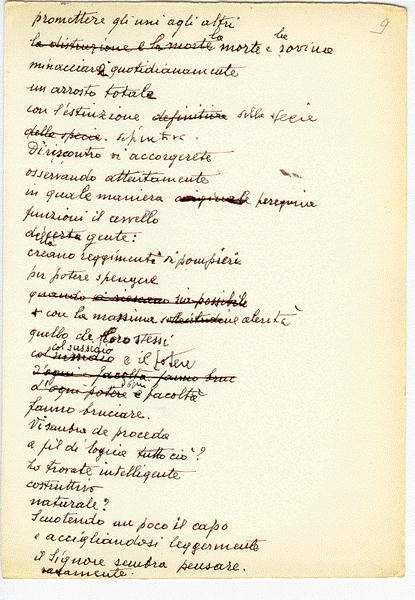 9
promettere gli uni agli altri
la distruzione e la morte la morte e la rovina
minacciarsi quotidianamente
un arrosto totale
con l'estinzione definitiva della specie
della specie. definitiva.
Di riscontro vi accorgerete
osservando attentamente
in quale maniera originale peregrina
funzioni il cervello
di certa della gente:
creano reggimenti di pompieri
per potere spengere
quando si possibile
e con la massima sollecitudine celerità
quello che loro stessi
col sussidio col sussidio e il potere
d'ogni facoltà fanno bruc
d'ogni potere d'ogni facoltà
fanno bruciare.
Vi sembra che proceda
a fil di logica tutto ciò?
Lo trovate intelligente
costruttivo
naturale?
Scuotendo un poco il capo
e accigliandosi leggermente
il Signore sembra pensare.